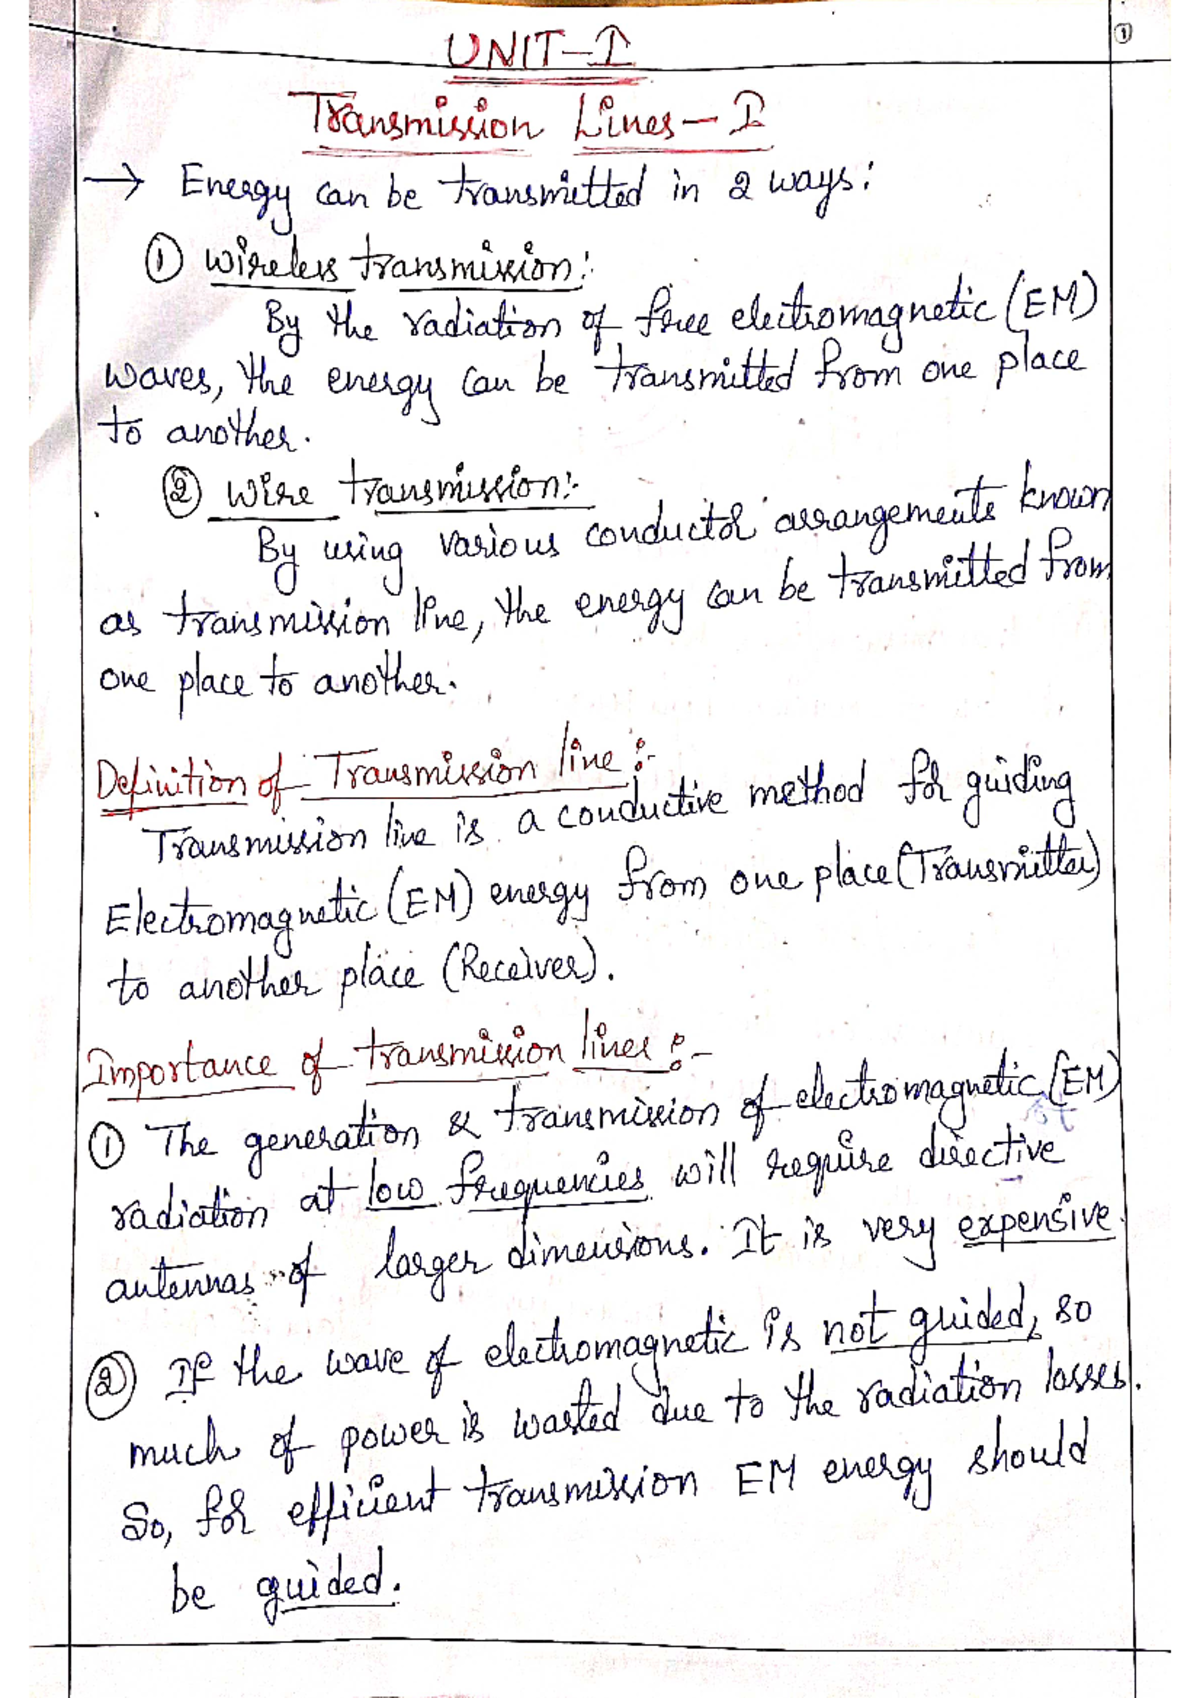 ①
UNIT-I
Transmission Lines-I
→ Energy can be transmitted in 2 ways:
① wireless transmission:
By the radiation of free electromagnetic (EM)
waves, the energy can be transmitted from one place
to another.
② wire transmission:-
By using various conductor arrangements known
as transmission line, the energy can be transmitted from
one place to another.
Definition of Transmission line :-
Transmission line is a conductive method for guiding
Electromagnetic (EM) energy from one place (Transmitter)
to another place (Receiver).
Importance of transmission lines :-
① The generation & transmission of electromagnetic (EM)
radiation at low frequencies will require directive
antennas of larger dimensions. It is very expensive.
② If the wave of electromagnetic is not guided, so
much of power is wasted due to the radiation losses.
So, for efficient transmission EM energy should
be guided.